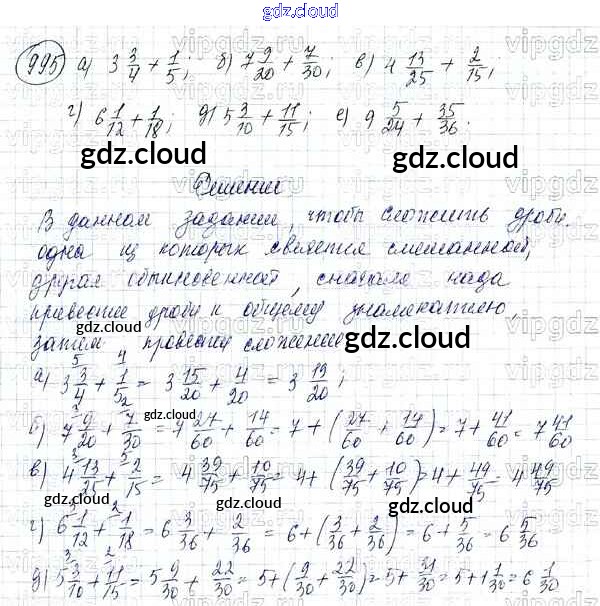 gdz.cloud
995 а) 3 3/4 + 1/5; б) 7 9/20 + 7/30; в) 4 13/25 + 2/15;
г) 6 1/12 + 1/18; д) 5 3/10 + 11/15; е) 9 5/24 + 35/36.
gdz.cloud gdz.cloud
Решение
В данном задании, чтобы сложить дроби,
одна из которых является смешанной,
другая обыкновенной, сначала надо
привести дроби к общему знаменателю,
gdz.cloud
затем провести сложение
gdz.cloud
а) 3 3/4 + 1/5 = 3 15/20 + 4/20 = 3 19/20;
б) 7 9/20 + 7/30 = 7 27/60 + 14/60 = 7 + (27/60 + 14/60) = 7 + 41/60 = 7 41/60
в) 4 13/25 + 2/15 = 4 39/75 + 10/75 = 4 + (39/75 + 10/75) = 4 + 49/75 = 4 49/75
gdz.cloud gdz.cloud
г) 6 1/12 + 1/18 = 6 3/36 + 2/36 = 6 + (3/36 + 2/36) = 6 + 5/36 = 6 5/36
д) 5 3/10 + 11/15 = 5 9/30 + 22/30 = 5 + (9/30 + 22/30) = 5 + 31/30 = 5 + 1 1/30 = 6 1/30
gdz.cloud gdz.cloud